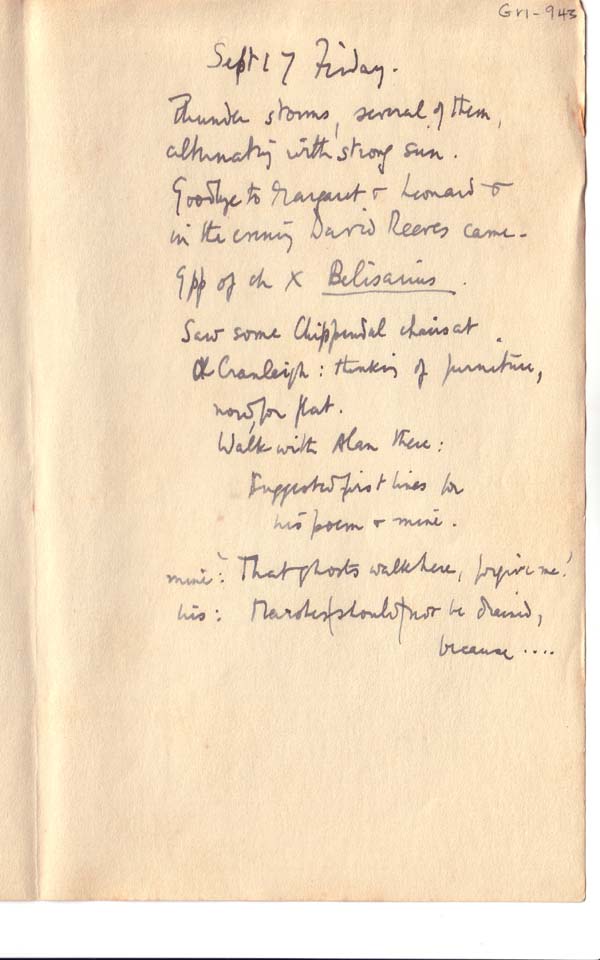 GVI-943
Sept 17 Friday.
Thunder storms, several of them,
alternating with strong sun.
Goodbye to Margaret & Leonard &
in the evening David Reeves came.
9pp of ch X Belisarius.
Saw some Chippendal chairs at
Cranleigh: thinking of furniture,
now, for flat.
Walk with Alan there:
Suggested first lines for
his poem & mine.
mine: That ghosts walk here, forgive me!
his: Marshes (should) not be drained,
because ....